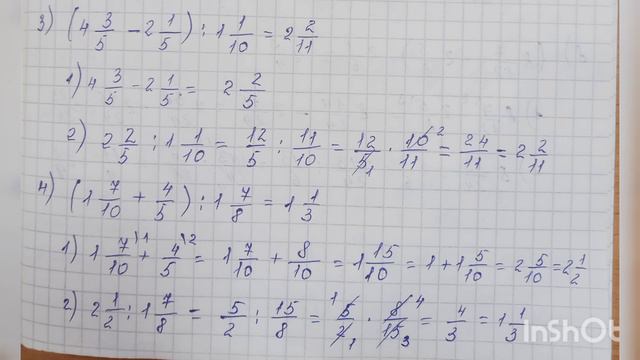 3) (4 3/5 - 2 1/5) : 1 1/10 = 2 2/11
1) 4 3/5 - 2 1/5 = 2 2/5
2) 2 2/5 : 1 1/10 = 12/5 : 11/10 = 12/5 1 · 10 2/11 = 24/11 = 2 2/11
4) (1 7/10 + 4/5) : 1 7/8 = 1 1/3
1) 1 7/10 \1 + 4/5 \2 = 1 7/10 + 8/10 = 1 15/10 = 1 + 1 5/10 = 2 5/10 = 2 1/2
2) 2 1/2 : 1 7/8 = 5/2 : 15/8 = 1 5/2 1 · 8 4/15 3 = 4/3 = 1 1/3
InShOt